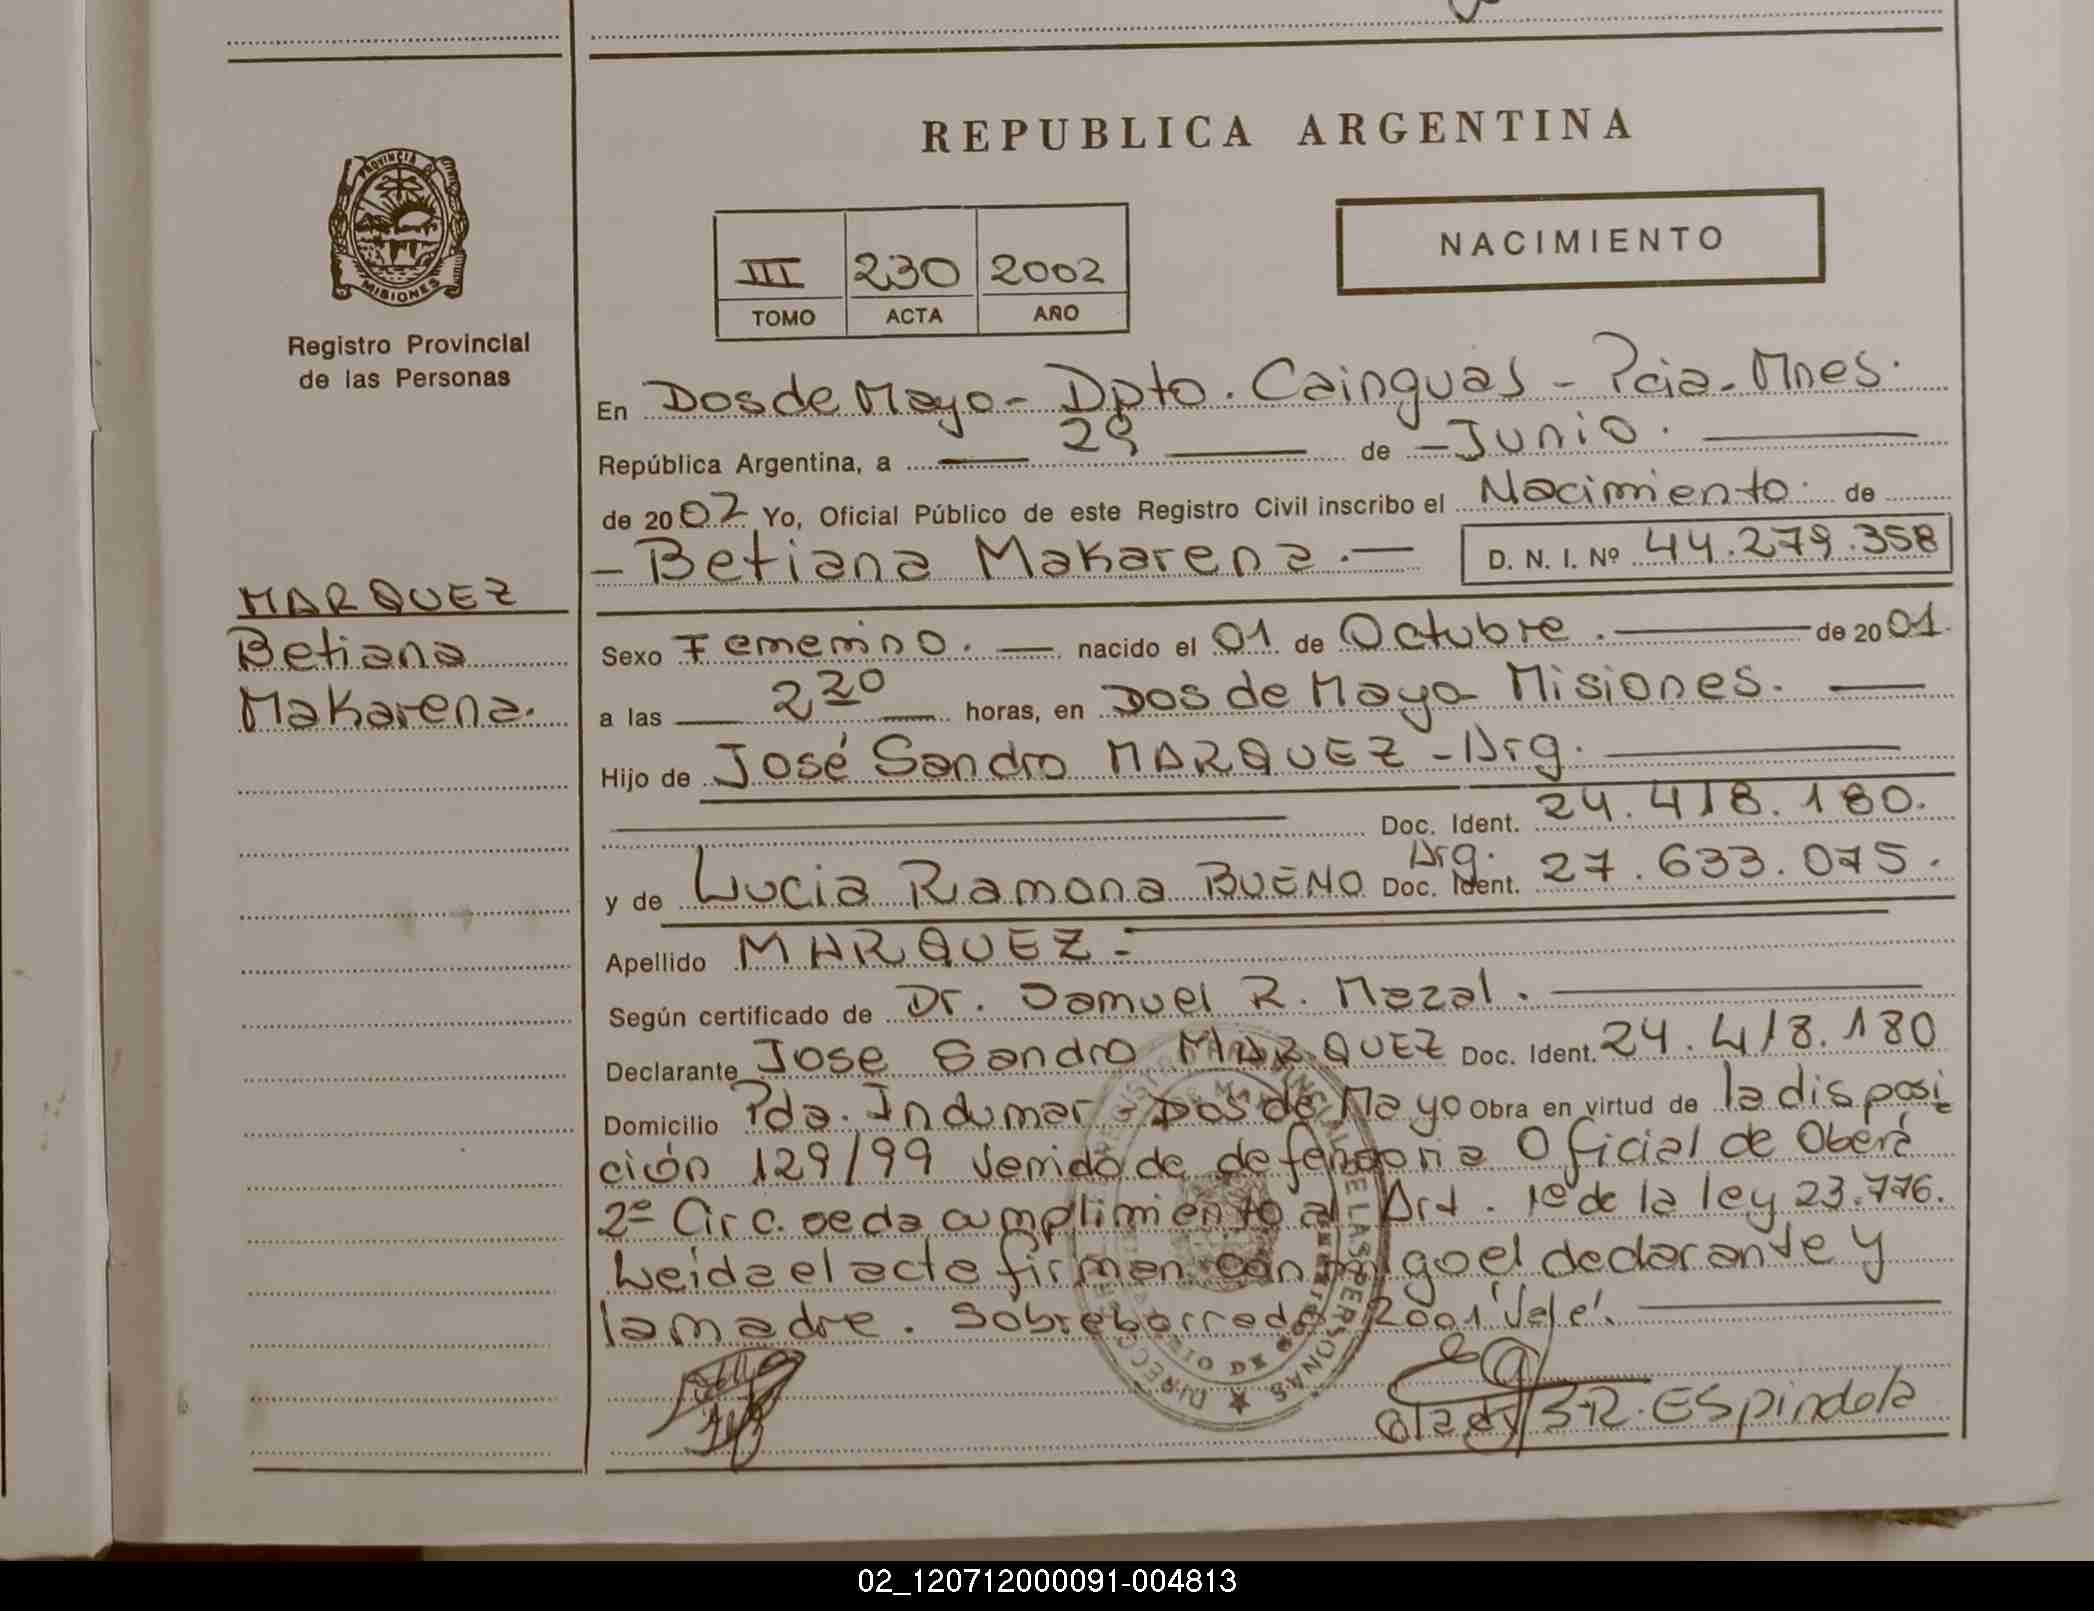 REPUBLICA ARGENTINA
PROVINCIA
MISIONES
Registro Provincial
de las Personas
III 230 2002
TOMO ACTA AÑO
NACIMIENTO
En Dos de Mayo - Dpto. Cainguas - Pcia. Mnes.
República Argentina, a 28 de - Junio.
de 2002 Yo, Oficial Público de este Registro Civil inscribo el Nacimiento de
- Betiana Makarena. — D. N. I. Nº 44.279.358
MARQUEZ
Betiana
Makarena.
Sexo Femenino. — nacido el 01 de Octubre. — de 2001.
a las 2 20 horas, en Dos de Mayo Misiones. —
Hijo de José Sandro MARQUEZ - Arg.
Doc. Ident. 24.418.180.
y de Lucia Ramona BUENO Arg. Doc. Ident. 27.633.075.
Apellido MARQUEZ -
Según certificado de Dr. Samuel R. Mazal.
Declarante Jose Sandro MARQUEZ Doc. Ident. 24.418.180
Domicilio Pda. Indumar - Dos de Mayo Obra en virtud de la disposi
ción 129/99 venido de defensoria Oficial de Oberá
2º Circ. se da cumplimiento al Art. 1º de la ley 23.776.
Leida el acta firman conmigo el declarante y
la madre. Sobreborrado 2001 'Vale'.
R. Espindola
02_120712000091-004813